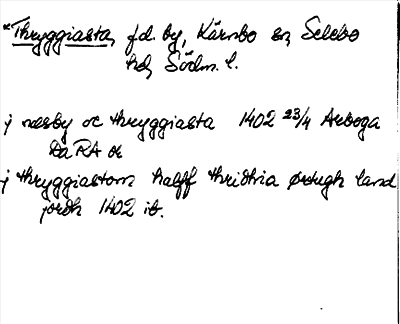 *Thryggiasta, fd. by, Kärnbo sn, Selebo
hd, Södm. l.
j næsby oc thryggiasta 1402 23/4 Arboga
Da RA or
j thryggiastom halff thridhia ørtugh land
jordh 1402 ib.